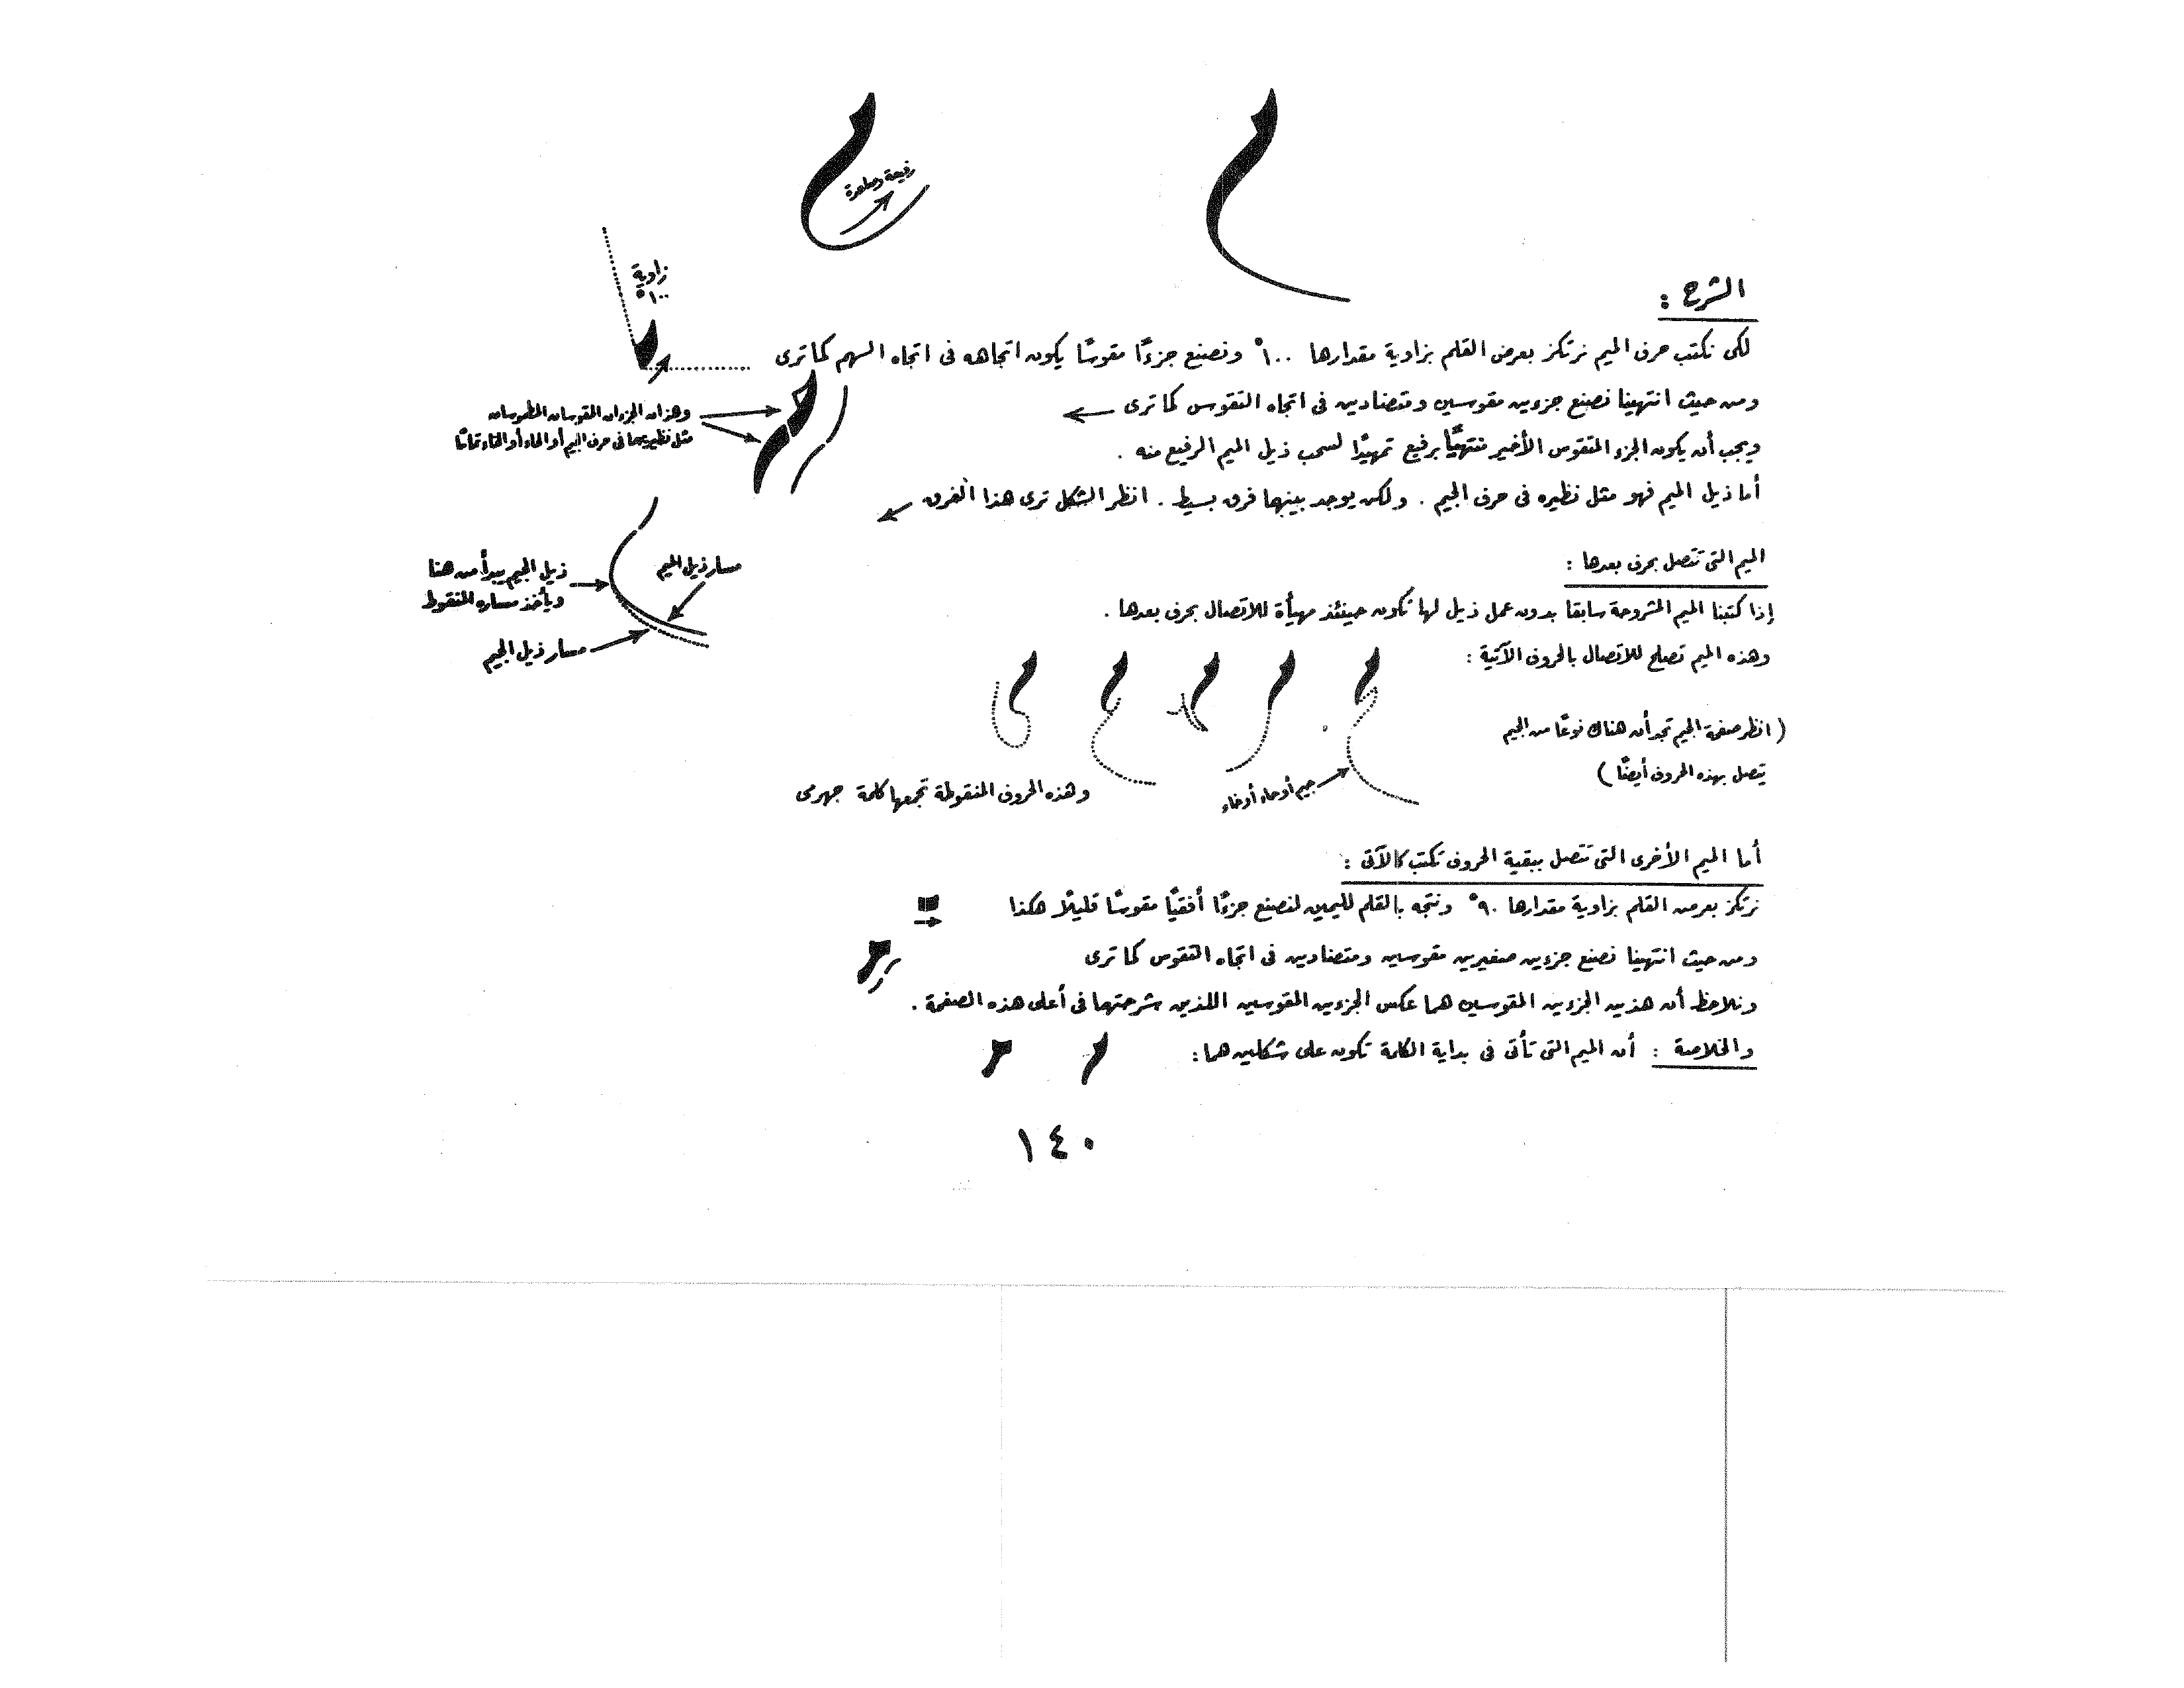 رفيعة وصاعدة
زاوية
١٠٠°
الشرح :
لكى نكتب حرف الميم نرتكز بعرض القلم بزاوية مقدارها ١٠٠° ونصنع جزءًا مقوسًا يكون اتجاهه فى اتجاه السهم كما ترى
ومن حيث انتهينا نصنع جزءين مقوسين ومتضادين فى اتجاه التقوس كما ترى
وهذان الجزءان المقوسان المطموسان
مثل نظيريهما فى حرف الجيم أو الحاء أو الخاء تمامًا
ويجب أن يكون الجزء المتقوس الأخير منتهيًا برفيع تمهيدًا لسحب ذيل الميم الرفيع منه .
أما ذيل الميم فهو مثل نظيره فى حرف الجيم . ولكن يوجد بينهما فرق بسيط . انظر الشكل ترى هذا الفرق
مسار ذيل الميم
ذيل الجيم يبدأ من هنا
ويأخذ مساره المنقوط
مسار ذيل الجيم
الميم التى تتصل بحرف بعدها :
إذا كتبنا الميم المشروحة سابقا بدون عمل ذيل لها تكون حينئذ مهيأة للاتصال بحرف بعدها .
وهذه الميم تصلح للاتصال بالحروف الآتية :
( انظر صفحة الجيم تجد أن هناك نوعًا من الجيم
يتصل بهذه الحروف أيضًا )
جيم أو حاء أو خاء
وهذه الحروف المنقوطة تجمعها كلمة جهرمى
أما الميم الأخرى التى تتصل ببقية الحروف تكتب كالآتى :
نرتكز بعرض القلم بزاوية مقدارها ٩٠° ونتجه بالقلم لليمين لنصنع جزءًا أفقيًا مقوسًا قليلًا هكذا
ومن حيث انتهينا نصنع جزءين صغيرين مقوسين ومتضادين فى اتجاه التقوس كما ترى
ونلاحظ أن هذين الجزءين المقوسين هما عكس الجزءين المقوسين اللذين شرحتهما فى أعلى هذه الصفحة .
والخلاصة : أن الميم التى تأتى فى بداية الكلمة تكون على شكلين هما :
١٤٠